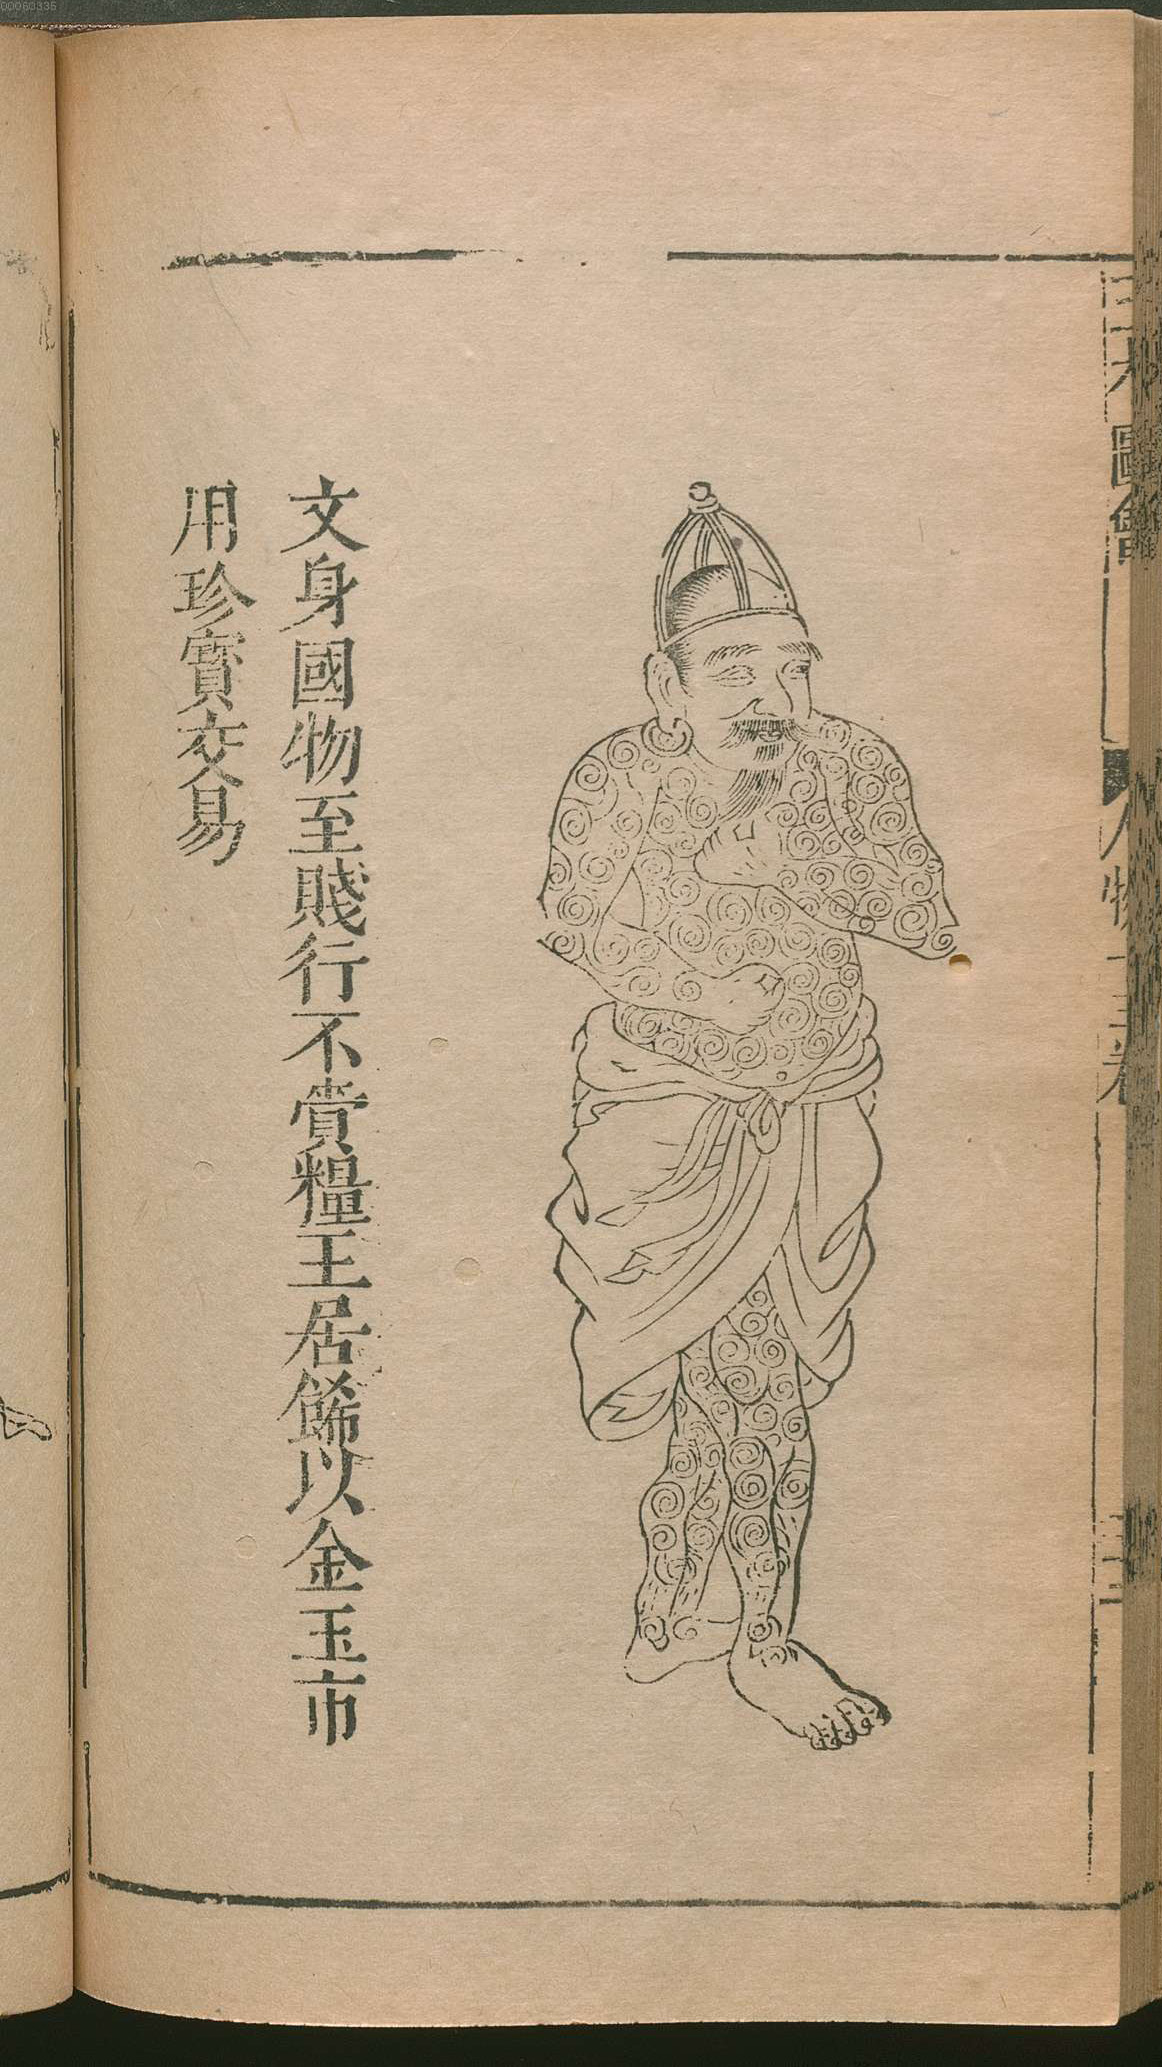 三才圖會
人物十三卷
文身國物至賤行不賫糧王居餙以金玉市
用珍寳交易
00063335